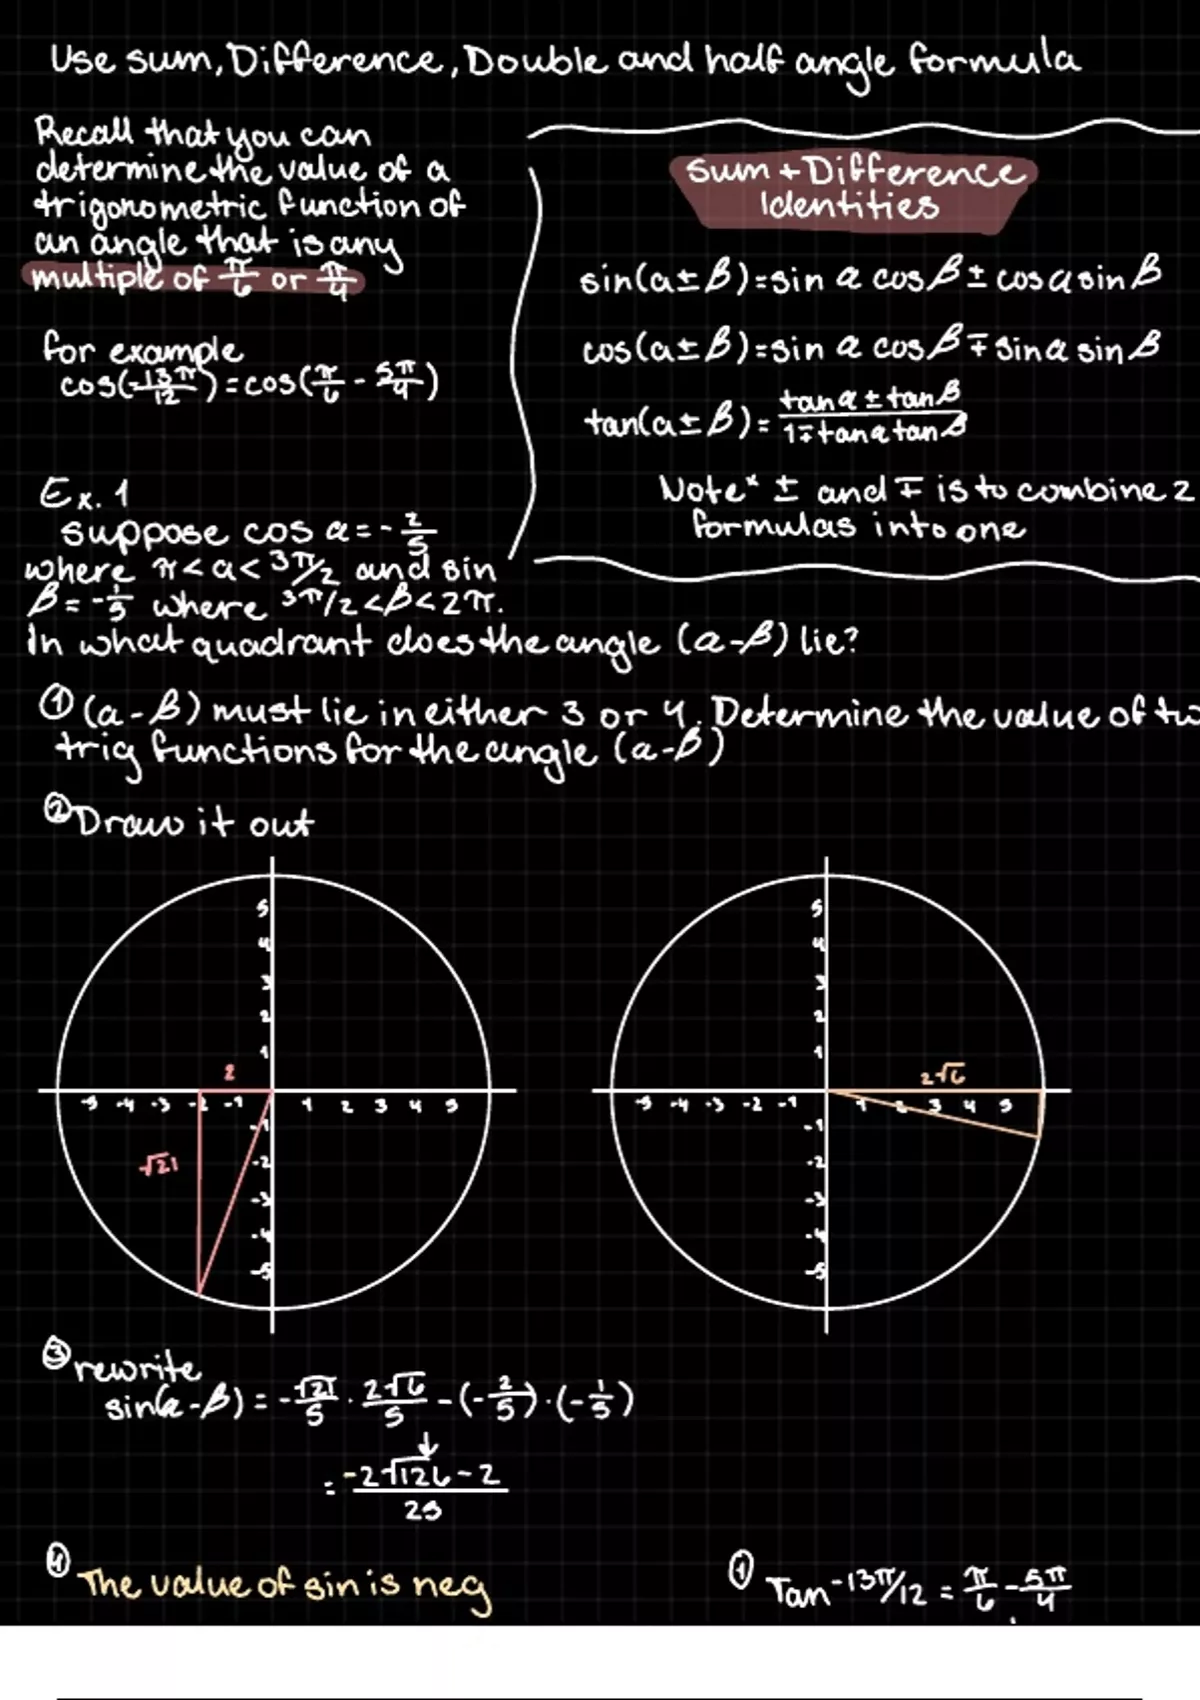 Use sum, Difference, Double and half angle formula
Recall that you can
determine the value of a
trigonometric function of
an angle that is any
multiple of π/6 or π/4
for example
cos(-13π/12) = cos(π/6 - 5π/4)
Sum + Difference
Identities
sin(α ± β) = sin α cos β ± cos α sin β
cos(α ± β) = sin α cos β ∓ sin α sin β
tan(α ± β) = tan α ± tan β / 1 ∓ tan α tan β
Note* ± and ∓ is to combine 2
formulas into one
Ex. 1
suppose cos α = -2/5
where π < α < 3π/2 and sin
β = -1/5 where 3π/2 < β < 2π.
In what quadrant does the angle (α - β) lie?
① (α - β) must lie in either 3 or 4. Determine the value of tw
trig functions for the angle (α - β)
② Draw it out
5
4
3
2
1
2
-5 -4 -3 -2 -1 1 2 3 4 5
√21
-1
-2
-3
-4
-5
5
4
3
2
1
2√6
-5 -4 -3 -2 -1 1 2 3 4 5
-1
-2
-3
-4
-5
③ rewrite
sin(α - β) = -√21/5 · 2√6/5 - (-2/5) · (-1/5)
= -2√126 - 2 / 25
④ The value of sin is neg
① Tan -13π/12 = π/6 - 5π/4